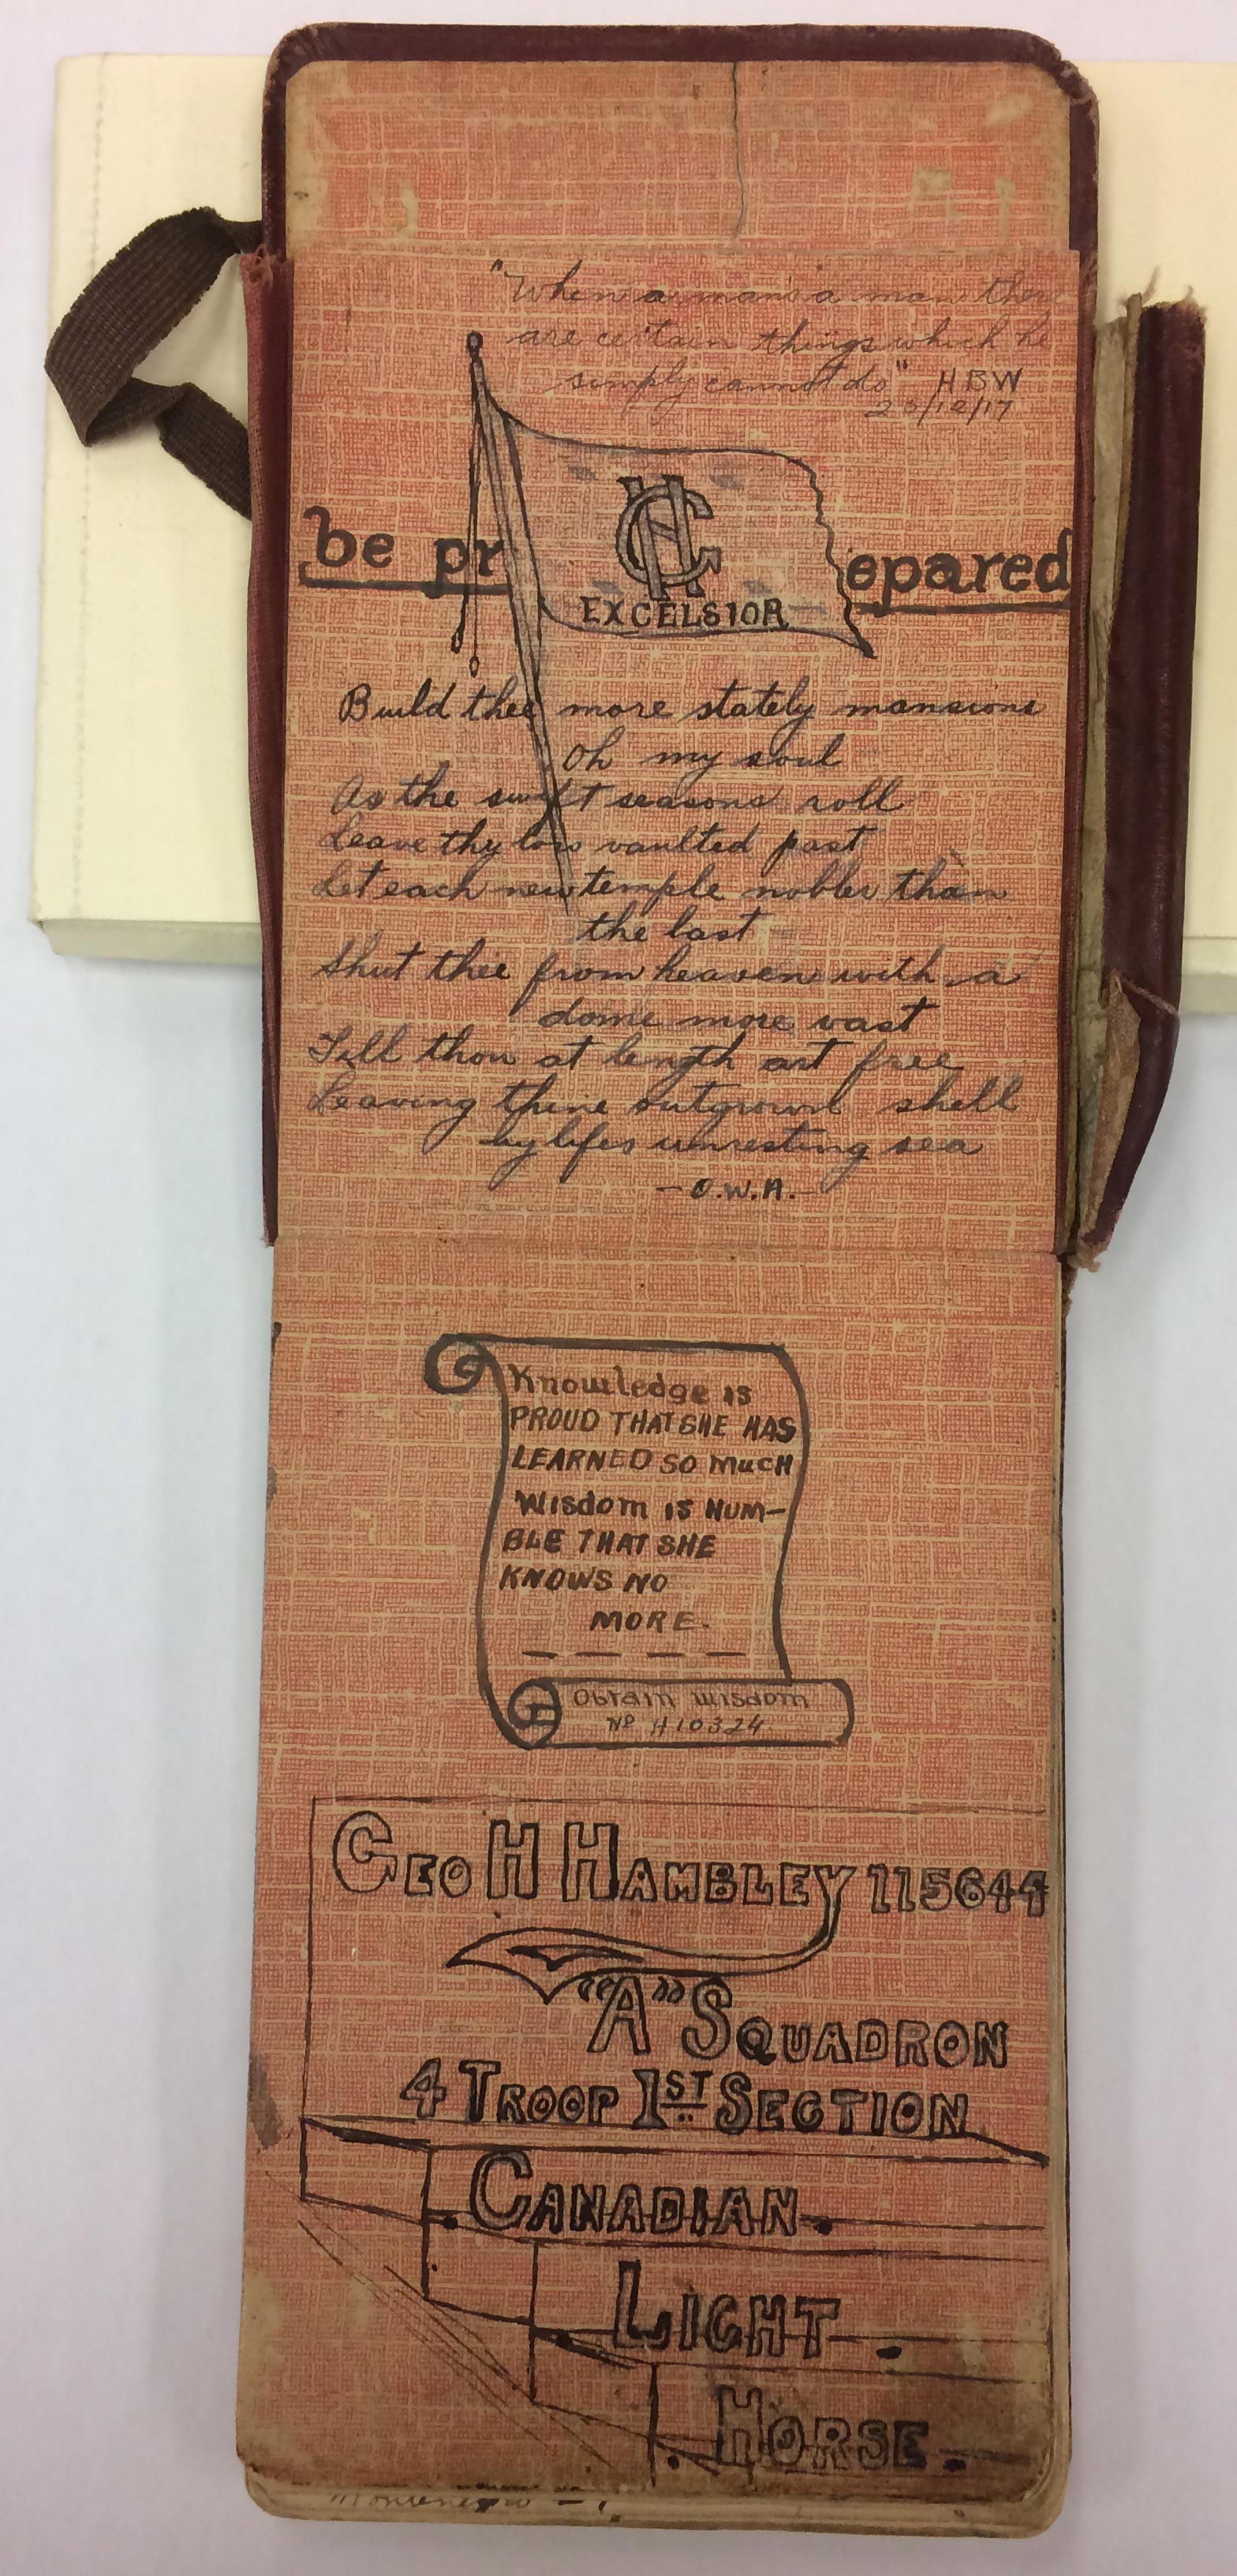 "When a man's a man there
are certain things which he
simply cannot do" HBW
23/12/17
be prepared
CH
EXCELSIOR
Build thee more stately mansions
Oh my soul
As the swift seasons roll
Leave thy low vaulted past
Let each new temple nobler than
the last
Shut thee from heaven with a
dome more vast
Till thou at length art free
Leaving thine outgrown shell
by lifes unresting sea
- O.W.H. -
Knowledge is
PROUD THAT SHE HAS
LEARNED SO MucH
Wisdom is HUM-
BLE THAT SHE
KNOWS NO
MORE.
Obtain wisdom
No H10324
GEO H HAMBLEY 115644
"A" SQUADRON
4 TROOP 1ST SECTION
CANADIAN
LIGHT
HORSE.
Montenegro -